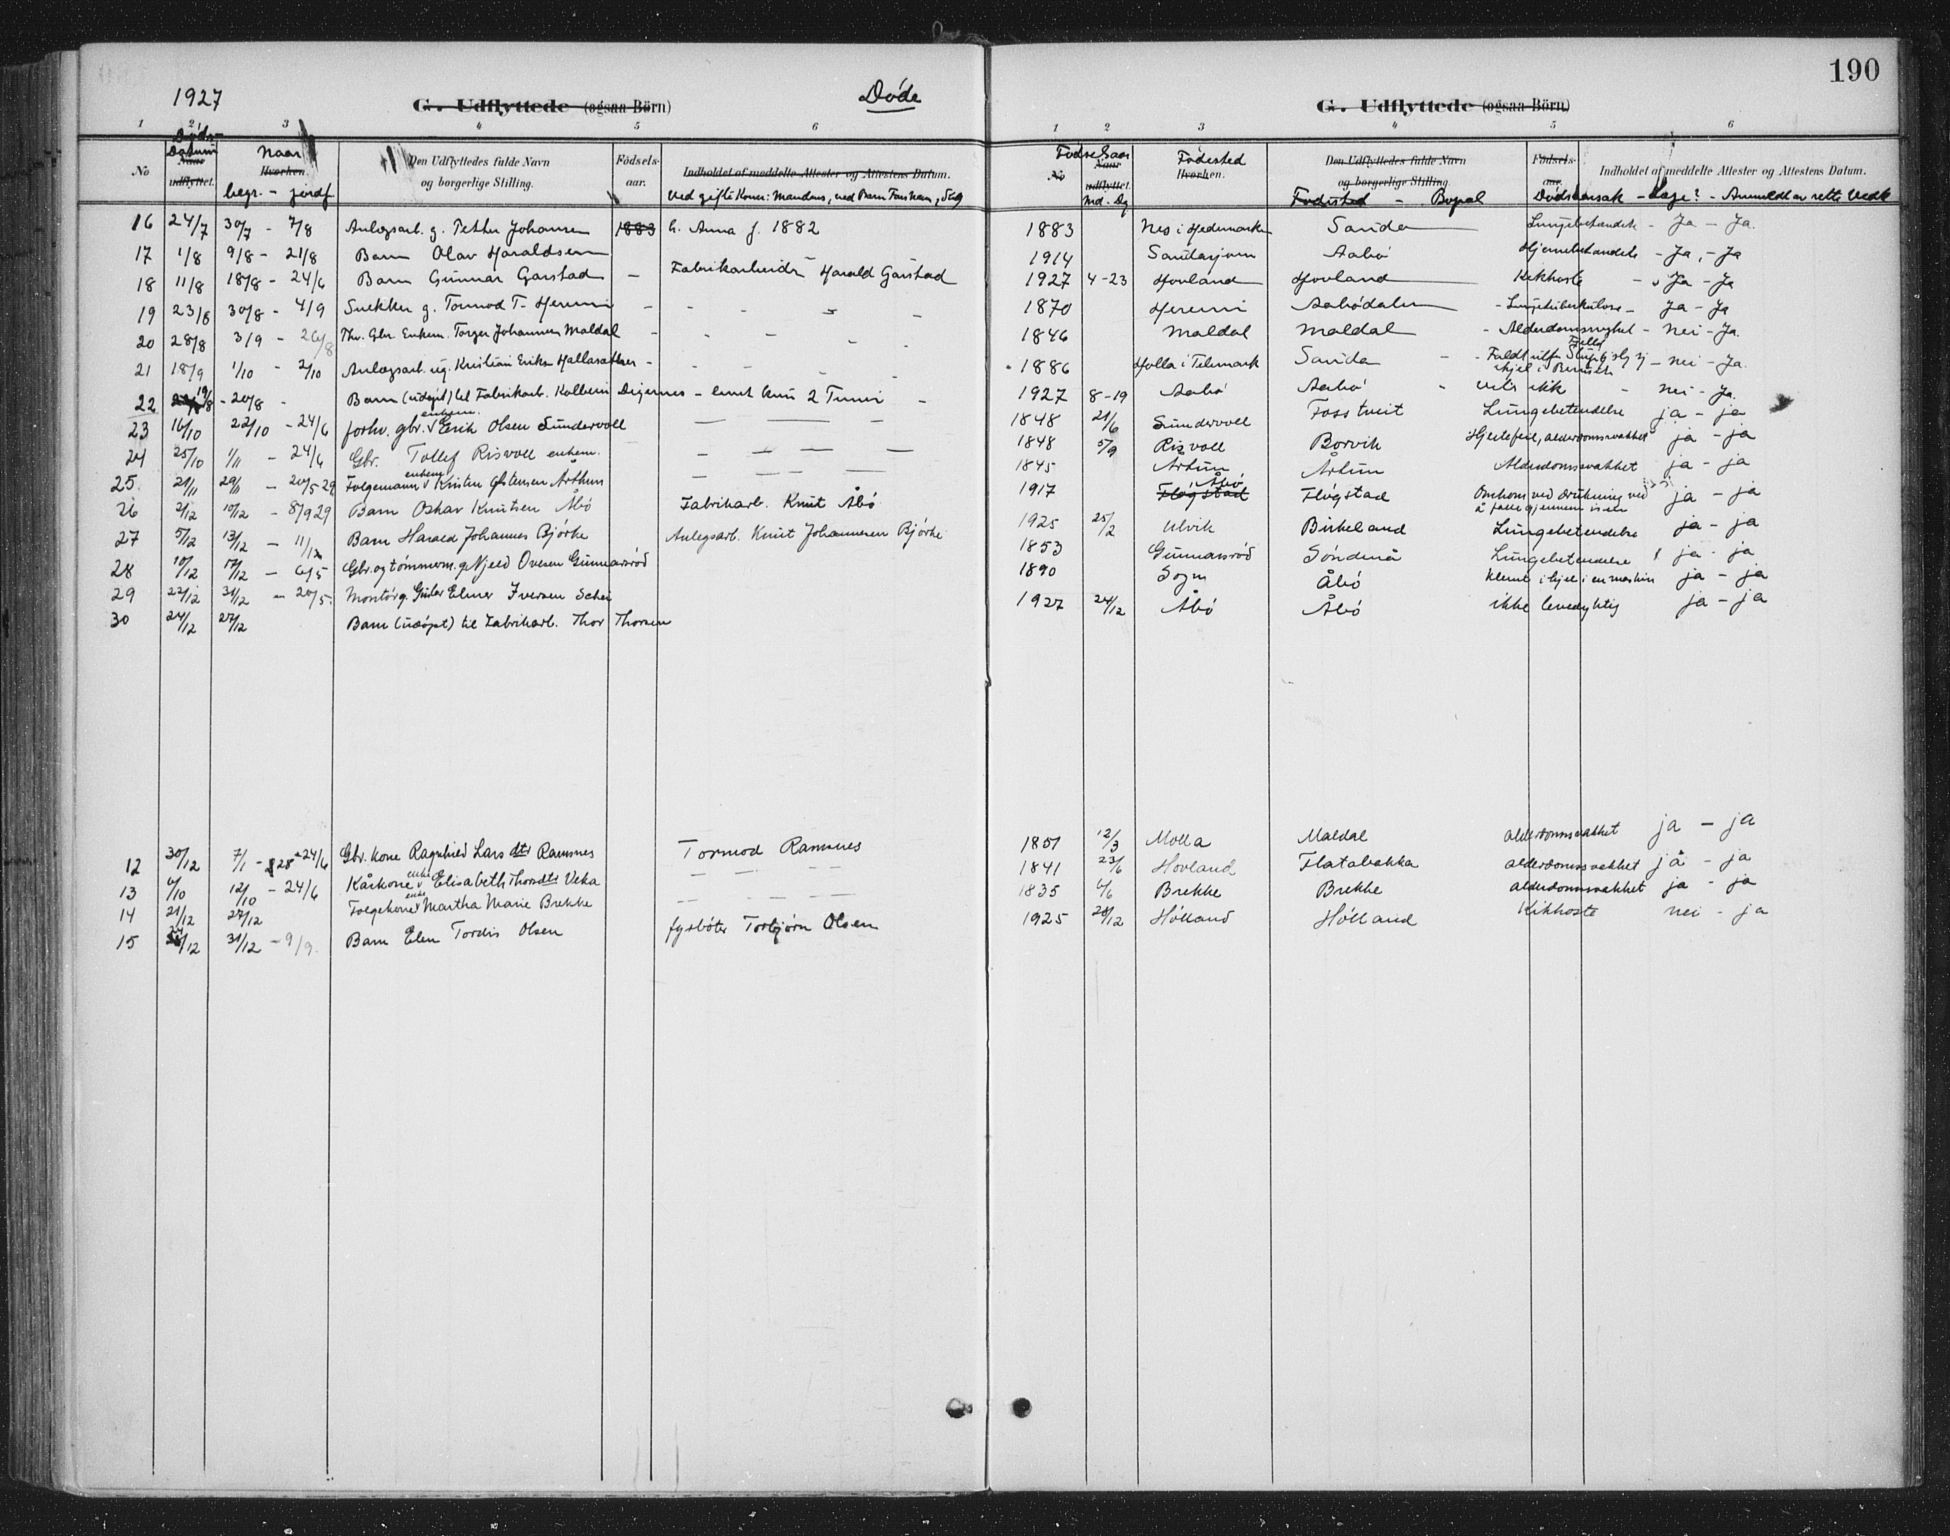 190
1927
G. Udflyttede (ogsaa Börn)
Døde
G. Udflyttede (ogsaa Börn)
1 2 3 4 5 6
1 2 3 4 5 6
No Døds Datum Naar udflyttet. Naar Hvorhen. begr. - jordf. Den Udflyttedes fulde Navn og borgerlige Stilling. Födsels- aar. Indholdet af meddelte Attester og Attestens Datum.
No Fødselsaar Naar udflyttet. Md. Dg Fødested Hvorhen. Den Udflyttedes fulde Navn og borgerlige Stilling Fødested - Bopel Födsels- aar. Dødsaarsak - Læge? - Anmeldt av rette Vedk Indholdet af meddelte Attester og Attestens Datum.
16 24/7 30/7 - 7/8 Anlægsarb. g. Petter Johansen 1883 h. Anna f. 1882 1883 Nes i Hedemarken Sauda Ja - Ja.
17 1/8 9/8 - 21/8 Barn Olav Haraldsen 1914 Saudasjøen Aabø - Ja, - Ja
18 11/8 18/8 - 24/6 Barn Gunnar Garstad - Fabrikarbeider Harald Garstad 1927 4-23 Hovland Hovland Kikhoste - Ja - Ja
19 23/8 30/8 - 4/9 Snekker g. Tormod T. Hereim 1870 Hereim Aabødalen - Lungetuberkulose - Ja - Ja
20 28/8 3/9 - 26/8 Fhv. Gbr. Enkem. Torger Johannes Maldal 1846 Maldal Maldal - Alderdomssvakhet - nei - Ja.
21 18/9 1/10 - 2/10 Anlægsarb. ug. Kristian Eriksen 1886 Holla i Telemark Sauda - nei - Ja.
22 19/8 - 20/8 - Barn (udøpt) til Fabrikarb. Kolbein Digernes - levet kun 2 Timer - 1927 8-19 Aabø Aabø - nei - Ja.
23 16/10 22/10 - 24/6 forhv. gbr. enkem. Erik Olsen Sundevoll 1848 21/6 Sundevoll Fosstveit Lungebetendelse ja - ja
24 25/10 1/11 - 24/6 Gbr. Tollef Risvoll enkem. 1848 5/9 Risvoll Borvik Hjertefeil, alderdomssvakhet ja - ja
25. 21/11 29/11 - 20/5 29 Folgemann enkem Kristen Østensen Årthun 1845 Årtun Årtun Alderdomssvakhet ja - ja
26 2/12 10/12 - 8/9 29 Barn Oskar Knutsen Åbø Fabrikarb. Knut Åbø 1917 Fløgstad Åbø Fløgstad Omkom ved drukning ved å falle gjennem isen ja - ja
27 5/12 13/12 - 11/12 Barn Harald Johannes Bjørke Anlegsarb. Knut Johannesen Bjørke 1925 25/2 Ulvik Birkeland Lungebetendelse ja - ja
28 10/12 17/12 - 6/5 Gbr. og tømmerm. g. Njeld Ovesen Gunnarsrød 1853 Gunnarsrød Søndenå Lungebetendelse ja - ja
29 22/12 31/12 - 20/5. Montör g. Elmer Iversen Schei 1890 Sogn Åbø klemt ihjel i en maskin ja - ja
30 24/12 27/12 Barn (udøpt) til Fabrikarb. Thor Thorsen 1927 24/12 Åbø Åbø ikke levedyktig ja - ja
12 30/12 7/1 - 28 - 24/6 Gbr. kone Ragnhild Larsdtr Ramsnes Tormod Ramsnes 1851 12/3 Molla Maldal alderdomssvakhet ja - ja
13 6/10 12/10 - 24/6 Kårkone enke Elisabeth Thorsdtr Veka 1841 23/6 Hovland Flatabakka alderdomssvakhet ja - ja
14 21/12 27/12 Folgekone enke Martha Marie Brekke 1835 6/6 Brekke Brekke alderdomssvakhet ja - ja
15 31/12 - 9/9. Barn Elen Tordis Olsen fyrbøter Torbjørn Olsen 1925 28/12 Hølland Hølland Kikhoste nei - ja